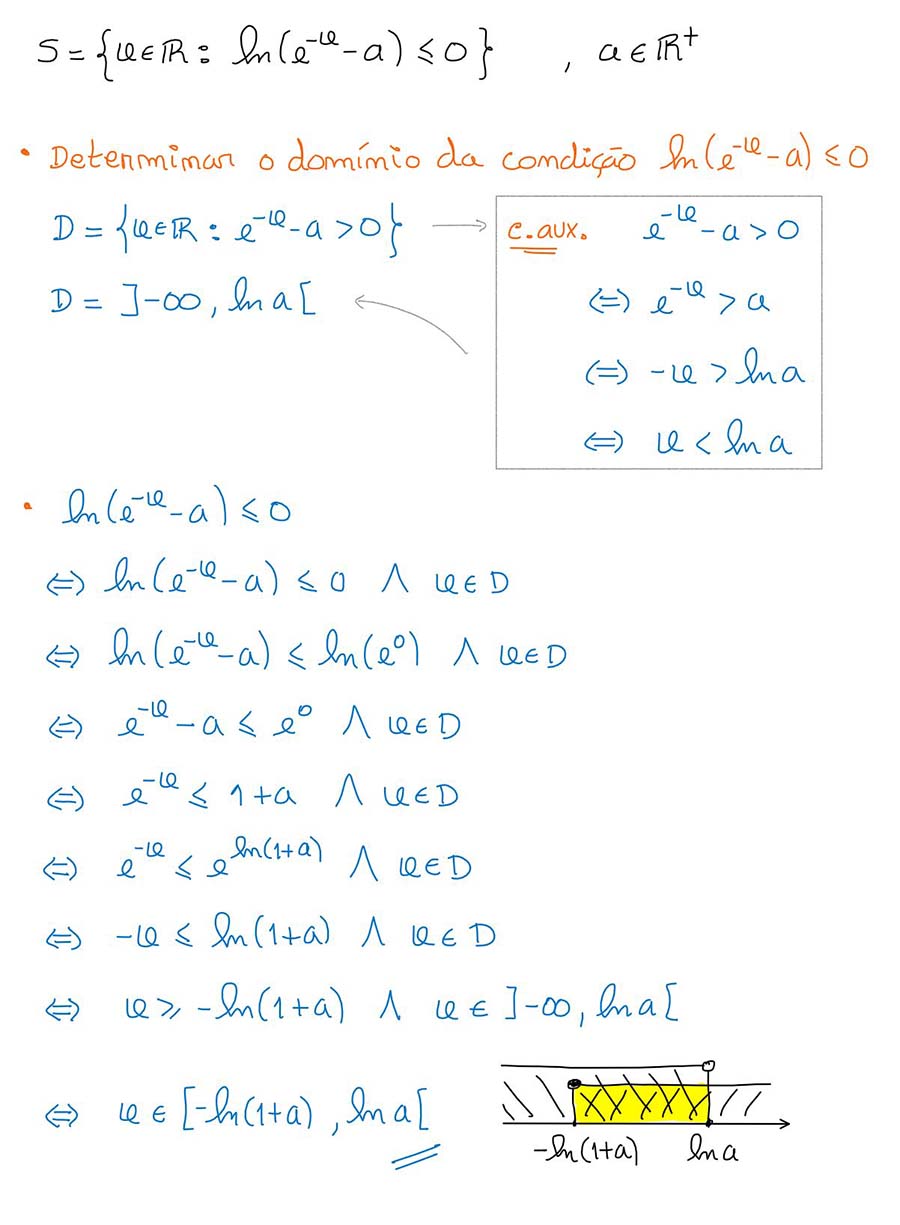 S = {x ∈ ℝ : ln(e^-x - a) ≤ 0} , a ∈ ℝ⁺
• Determinar o domínio da condição ln(e^-x - a) ≤ 0
D = {x ∈ ℝ : e^-x - a > 0}
D = ]-∞, ln a[
c. aux. e^-x - a > 0
⇔ e^-x > a
⇔ -x > ln a
⇔ x < ln a
• ln(e^-x - a) ≤ 0
⇔ ln(e^-x - a) ≤ 0 ∧ x ∈ D
⇔ ln(e^-x - a) ≤ ln(e^0) ∧ x ∈ D
⇔ e^-x - a ≤ e^0 ∧ x ∈ D
⇔ e^-x ≤ 1+a ∧ x ∈ D
⇔ e^-x ≤ e^ln(1+a) ∧ x ∈ D
⇔ -x ≤ ln(1+a) ∧ x ∈ D
⇔ x ≥ -ln(1+a) ∧ x ∈ ]-∞, ln a[
⇔ x ∈ [-ln(1+a), ln a[
-ln(1+a) ln a